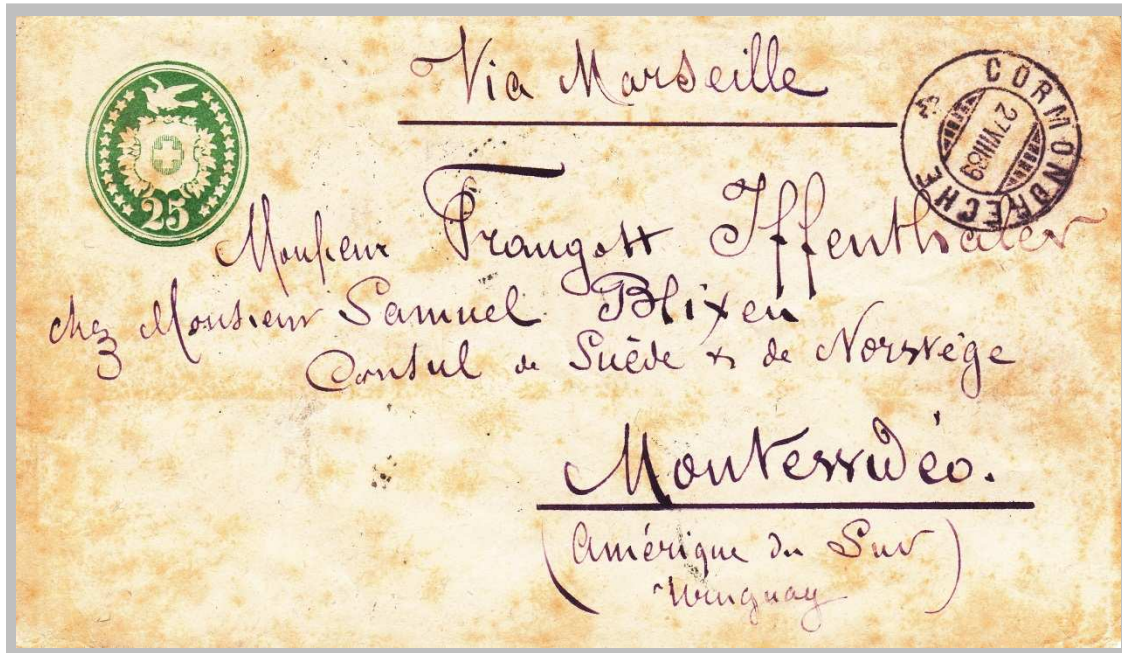 Via Marseille
25
CORMONDRÈCHE
27 VIII 89
Monsieur Traugott Iffenthaler
chez Monsieur Samuel Blixen
Consul de Suède & de Norvège
Montevidéo.
(Amérique du Sud
Uruguay)